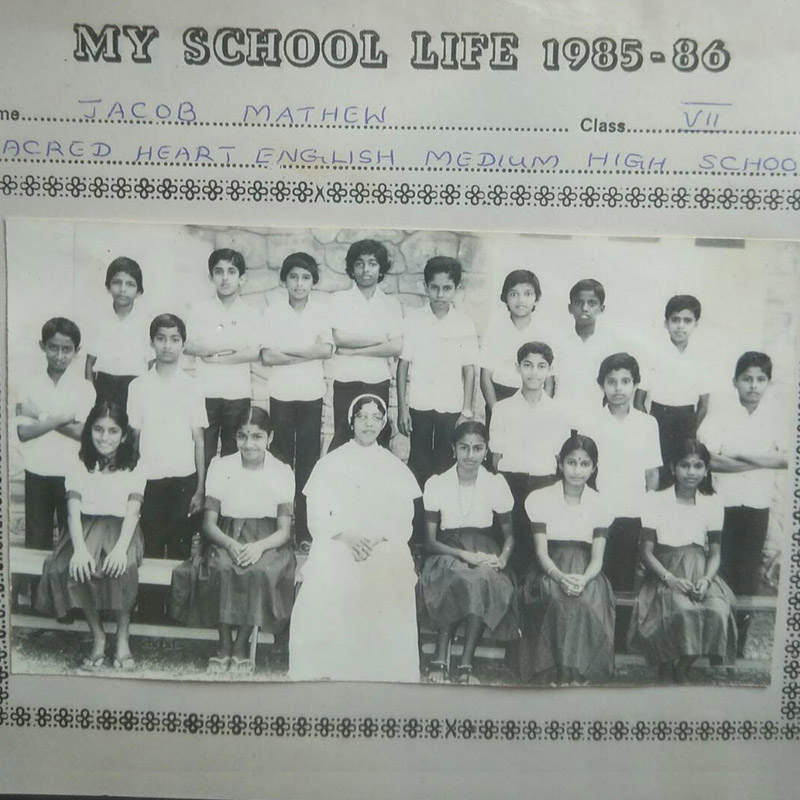 MY SCHOOL LIFE 1985-86
me JACOB MATHEW Class VII
ACRED HEART ENGLISH MEDIUM HIGH SCHOO